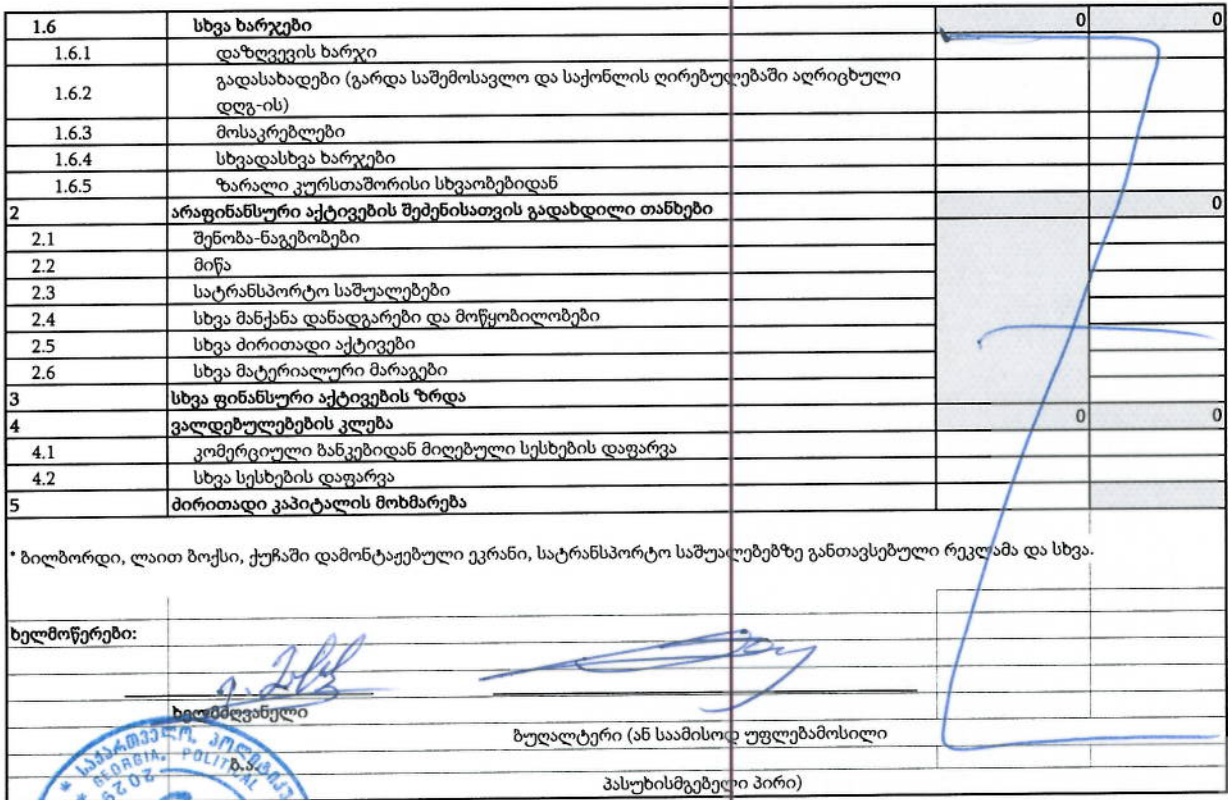 1.6 სხვა ხარჯები 0 0
1.6.1 დაზღვევის ხარჯი
1.6.2 გადასახადები (გარდა საშემოსავლო და საქონლის ღირებულებაში აღრიცხული
დღგ-ის)
1.6.3 მოსაკრებლები
1.6.4 სხვადასხვა ხარჯები
1.6.5 ზარალი კურსთაშორისი სხვაობებიდან
2 არაფინანსური აქტივების შეძენისათვის გადახდილი თანხები 0
2.1 შენობა-ნაგებობები
2.2 მიწა
2.3 სატრანსპორტო საშუალებები
2.4 სხვა მანქანა დანადგარები და მოწყობილობები
2.5 სხვა ძირითადი აქტივები
2.6 სხვა მატერიალური მარაგები
3 სხვა ფინანსური აქტივების ზრდა
4 ვალდებულებების კლება 0 0
4.1 კომერციული ბანკებიდან მიღებული სესხების დაფარვა
4.2 სხვა სესხების დაფარვა
5 ძირითადი კაპიტალის მოხმარება
* ბილბორდი, ლაით ბოქსი, ქუჩაში დამონტაჟებული ეკრანი, სატრანსპორტო საშუალებებზე განთავსებული რეკლამა და სხვა.
ხელმოწერები:
ხელმძღვანელი
ბუღალტერი (ან საამისოდ უფლებამოსილი
ბ.ა.
პასუხისმგებელი პირი)
* საქართველო. პოლიტიკუ
* GEORGIA, POLITICAL